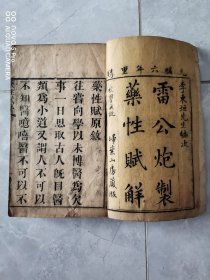 光緒六年重
李東垣先生編次
雷公炮製
藥性賦解
掃葉山房藏板
藥性賦原敘
往嘗向學以未博醫為欠
事一日思取古人既目醫
類為小道又謂人不可以
不知醫噫嘻醫不可以不